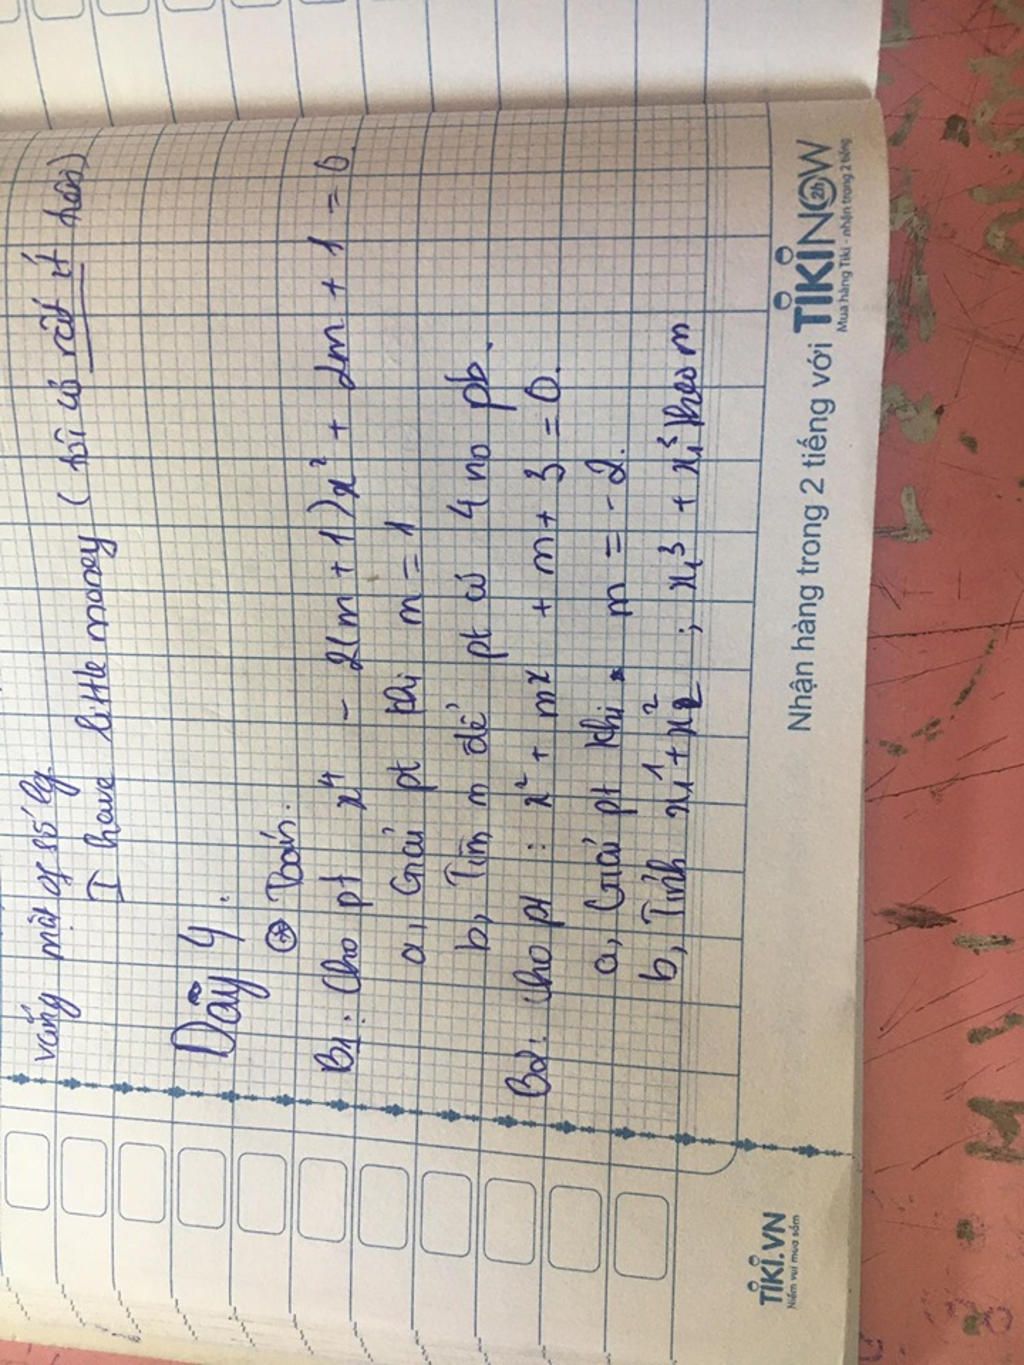 vắng mặt of số lg.
I have little money (tôi có rất ít tiền)
Dãy 4.
Toán.
B1: Cho pt x⁴ - 2(m + 1)x² + 2m + 1 = 0.
a, Giải pt khi m = 1
b, Tìm m để pt có 4 no pb.
B2: Cho pt : x² + mx + m + 3 = 0.
a, Giải pt khi m = -2.
b, Tính x₁¹ + x₂² ; x₁³ + x₁³ theo m
Nhận hàng trong 2 tiếng với TIKINOW 2h
Mua hàng Tiki - nhận trong 2 tiếng
TIKI.VN
Niềm vui mua sắm